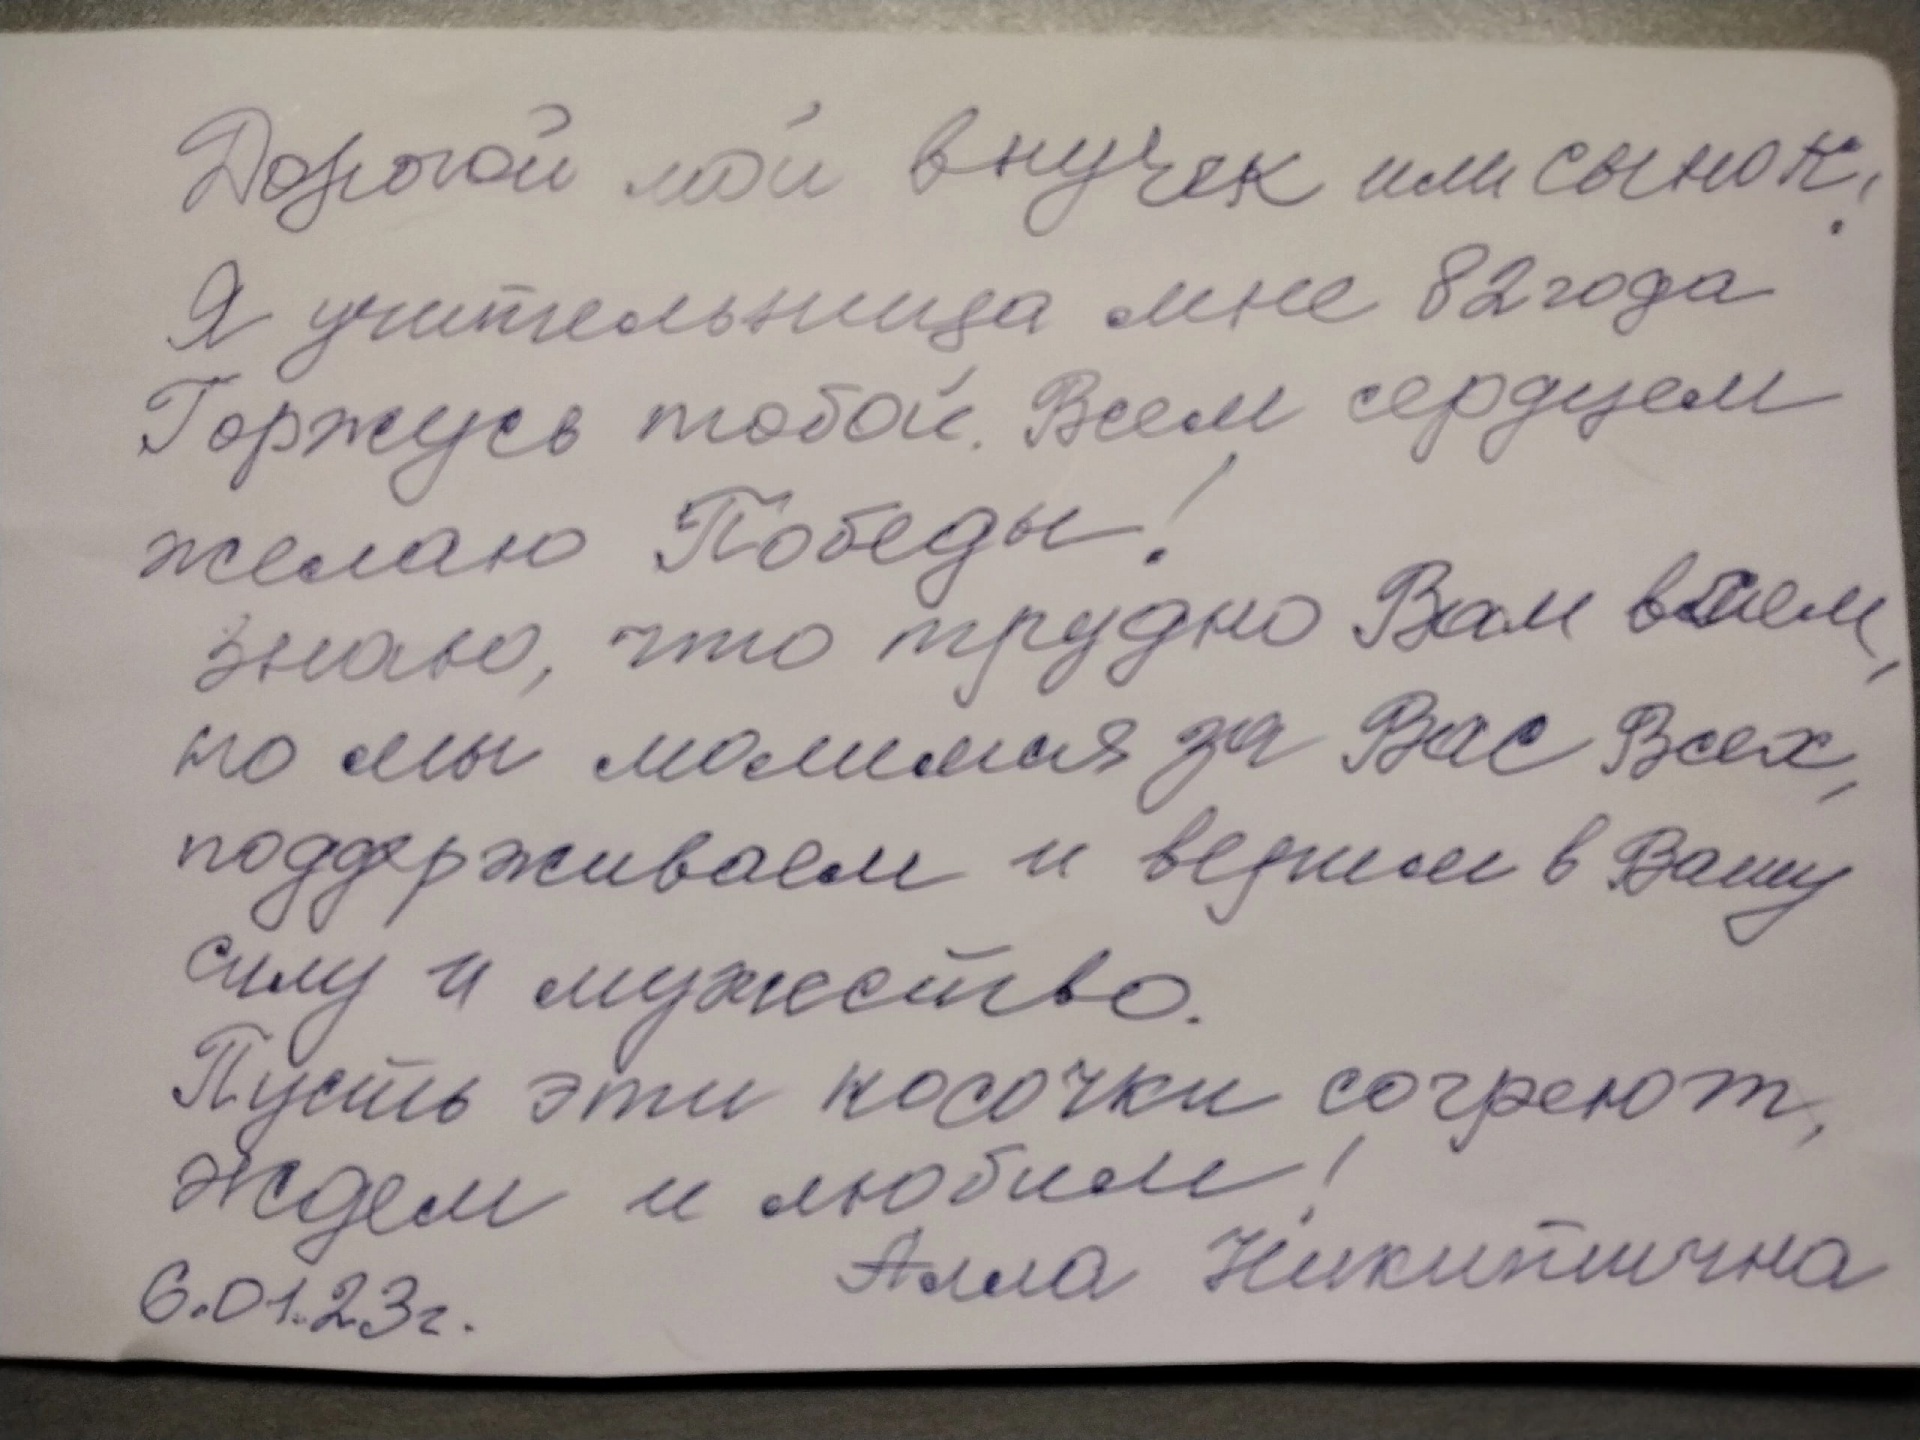 Дорогой мой внучек или сынок!
Я учительница мне 82 года
Горжусь тобой. Всем сердцем
желаю Победы!
знаю, что трудно Вам всем,
но мы молимся за Вас Всех,
поддерживаем и верим в Вашу
силу и мужество.
Пусть эти носочки согреют,
Ждем и любим!
Алла Никитична
6.01.23г.